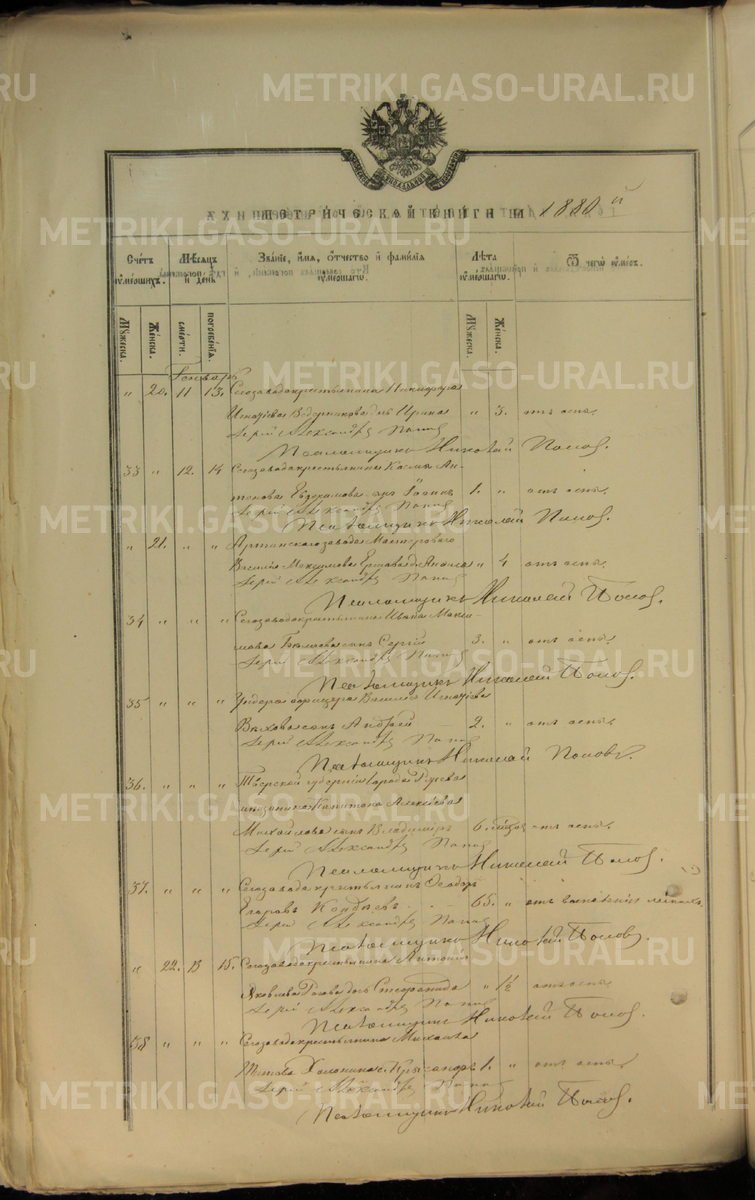 METRIKI.GASO-URAL.RU
МЕТРИЧЕСКОЙ КНИГИ 1880 й
Счетъ умершихъ.
Мѣсяцъ и день
Званіе, имя, отчество и фамилія умершаго.
Лѣта умершаго.
Ѿ чего умеръ.
Мужеска.
Женска.
смерти.
погребенія.
Мужеска.
Женска.
Январь
" 20. 11 13. Сего завода крестьянина Никифора
Игнатіева дочь Ирина " 3. отъ оспы
Іерей Александръ Попов
Псаломщикъ Николай Попов.
33 " 12. 14 Сего завода крестьянина Козмы Ан-
тонова сынъ 1. " отъ оспы.
Іерей Александръ Попов
Псаломщикъ Николай Попов.
" 21. " " Артинскаго завода Мастероваго
Василія Максимова " 4 отъ оспы
Іерей Александръ Попов
Псаломщикъ Николай Попов.
34 " " " Сего завода крестьянина Ивана Макси-
мова сынъ Сергій 3. " отъ оспы
Іерей Александръ Попов
Псаломщикъ Николай Попов.
35 " " " Ундеръ офицера Василія Игнатіева
сынъ Андрей 2. " отъ оспы
Іерей Александръ Попов
Псаломщикъ Николай Поповъ.
36. " " " Тверской губерніи города Ржева
мѣщанина Капитона Алексѣева
Михайлова сынъ Владиміръ 6. отъ оспы
Іерей Александръ Попов
Псаломщикъ Николай Попов.
37. " " " Сего завода крестьянинъ Ѳеодоръ
Егоровъ 65. " отъ
Іерей Александръ Попов
Псаломщикъ Николай Поповъ.
" 22. 13 15. Сего завода крестьянина Антонія
Яковлева дочь Стефанида " 1½ отъ оспы
Іерей Александръ Попов
Псаломщикъ Николай Попов.
38 " " " Сего завода крестьянина Михаила
Титова 1. " отъ оспы
Іерей Александръ Попов
Псаломщикъ Николай Попов.